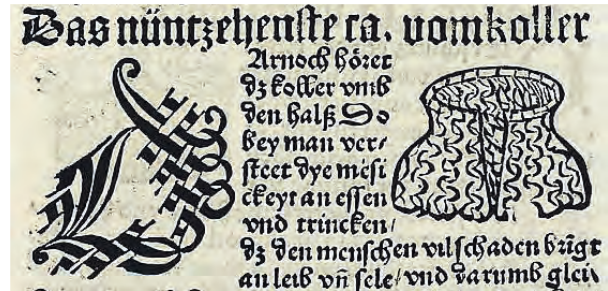 Das nüntzehenste ca. vom koller
Arnoch höret
dz koller vmb
den halß So
bey man ver⸗
steet dye mesi
ckeyt an essen
vnd trincken/
dz den menschen vil schaden brīgt
an leib vn̄ sele/ vnd darumb glei⸗